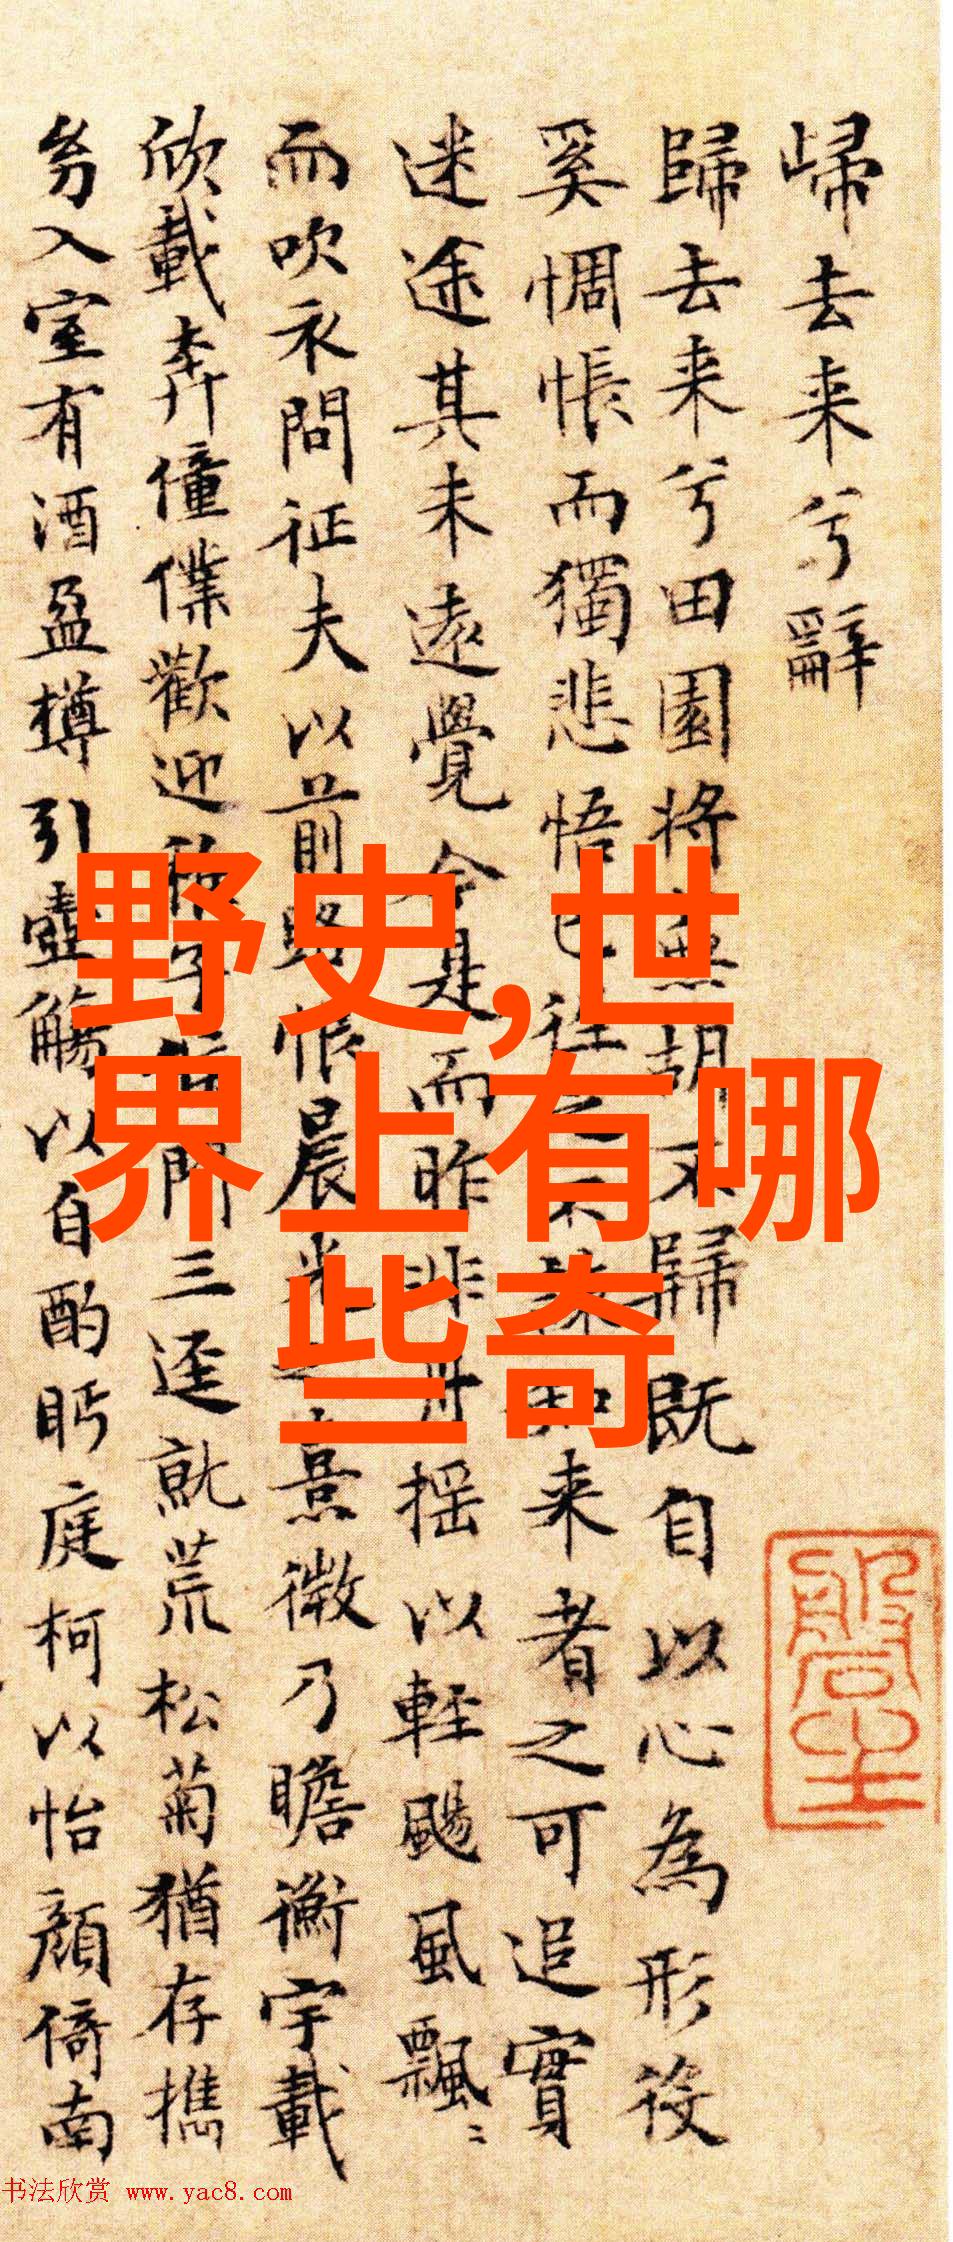 歸去来兮辭
歸去来兮田園将無胡不歸既自以心為形役
奚惆悵而獨悲悟已往之不諫知来者之可追實
迷途其未遠覺今是而昨非舟揺以輕颺風飄〻
而吹衣問征夫以前路恨晨光之熹微乃瞻衡宇載
欣載奔僮僕歡迎稚子候門三逕就荒松菊猶存携
㓜入室有酒盈樽引壺觴以自酌眄庭柯以怡顔倚南
野史,世
界上有哪
些奇
书法欣赏 www.yac8.com